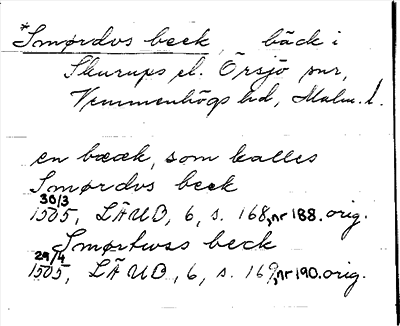 *Smørdvs beck, bäck i
Skurups el. Örsjö snr,
Vemmenhögs hd, Malm. l.
en bææk, som kalles
Smørdvs beck
30/3
1505, LÄUB, 6, s. 168, nr 188. orig.
Smørtwss beck
29/4
1505, LÄUB, 6, s. 169, nr 190. orig.